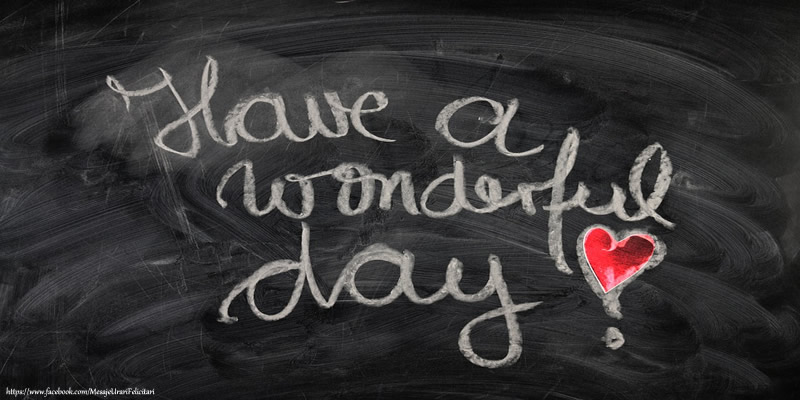 Have a
wonderful
day!
https://www.facebook.com/MesajeUrariFelicitari